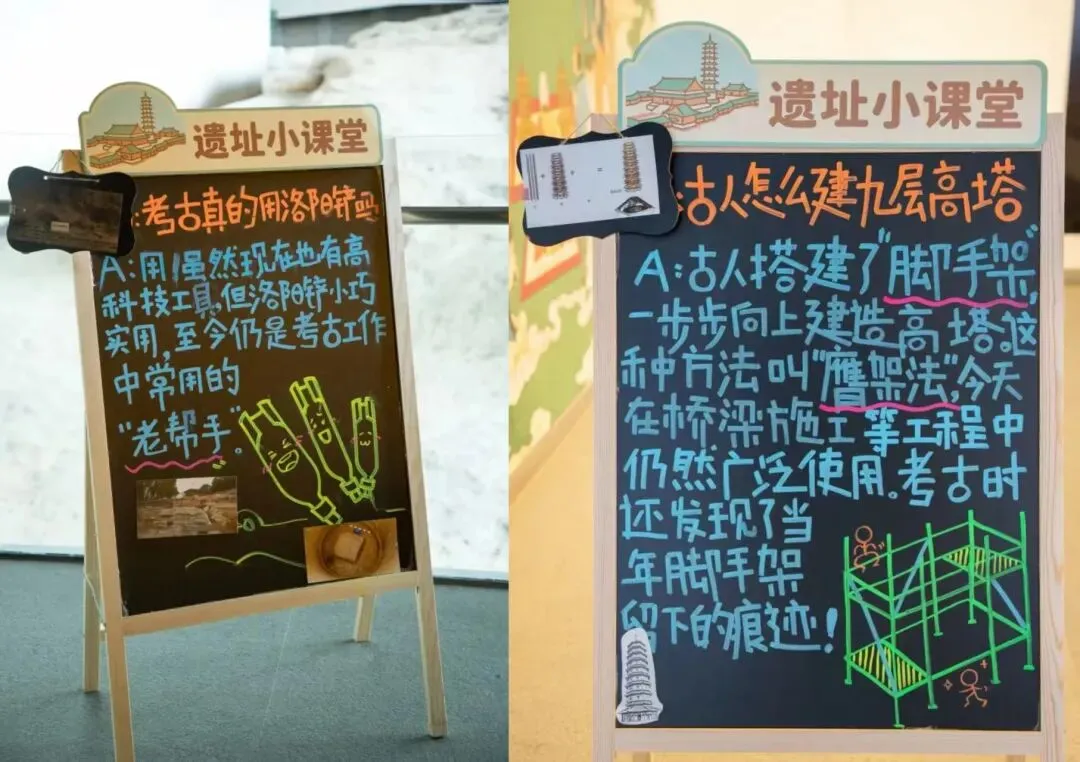 遗址小课堂
:考古真的用洛阳铲吗
A:用!虽然现在也有高
科技工具,但洛阳铲小巧
实用,至今仍是考古工作
中常用的
"老帮手"。
遗址小课堂
:古人怎么建九层高塔
A:古人搭建了"脚手架",
一步步向上建造高塔。这
种方法叫"鹰架法",今天
在桥梁施工等工程中
仍然广泛使用。考古时
还发现了当
年脚手架
留下的痕迹!